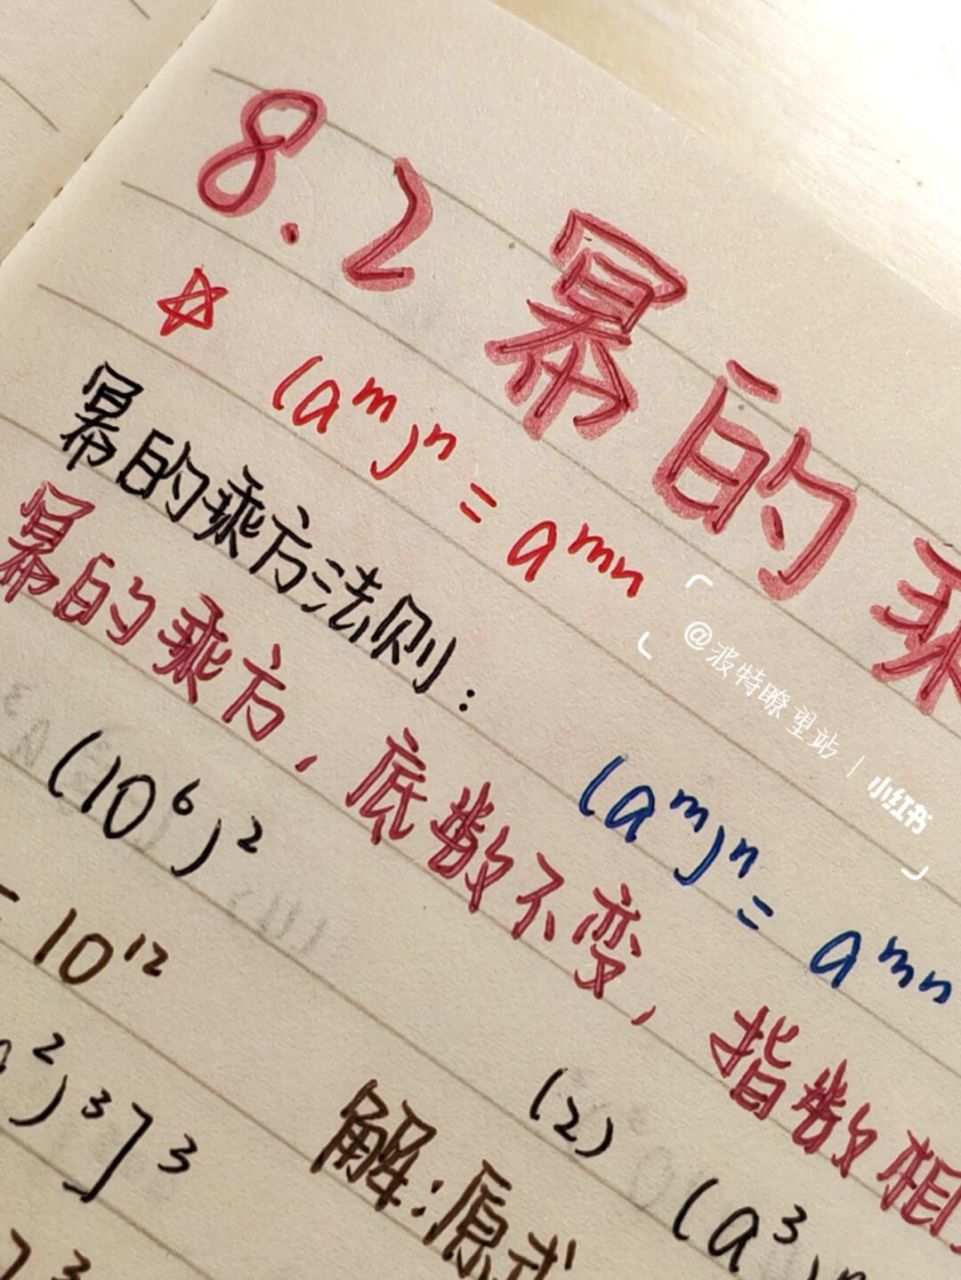 8.2 幂的乘
☆ (aᵐ)ⁿ = aᵐⁿ
幂的乘方法则: (aᵐ)ⁿ = aᵐⁿ
幂的乘方,底数不变,指数相
(10⁶)² (2) (a³)
= 10¹² 解:原式
²)³]³
]³
@波特瞭望站 | 小红书